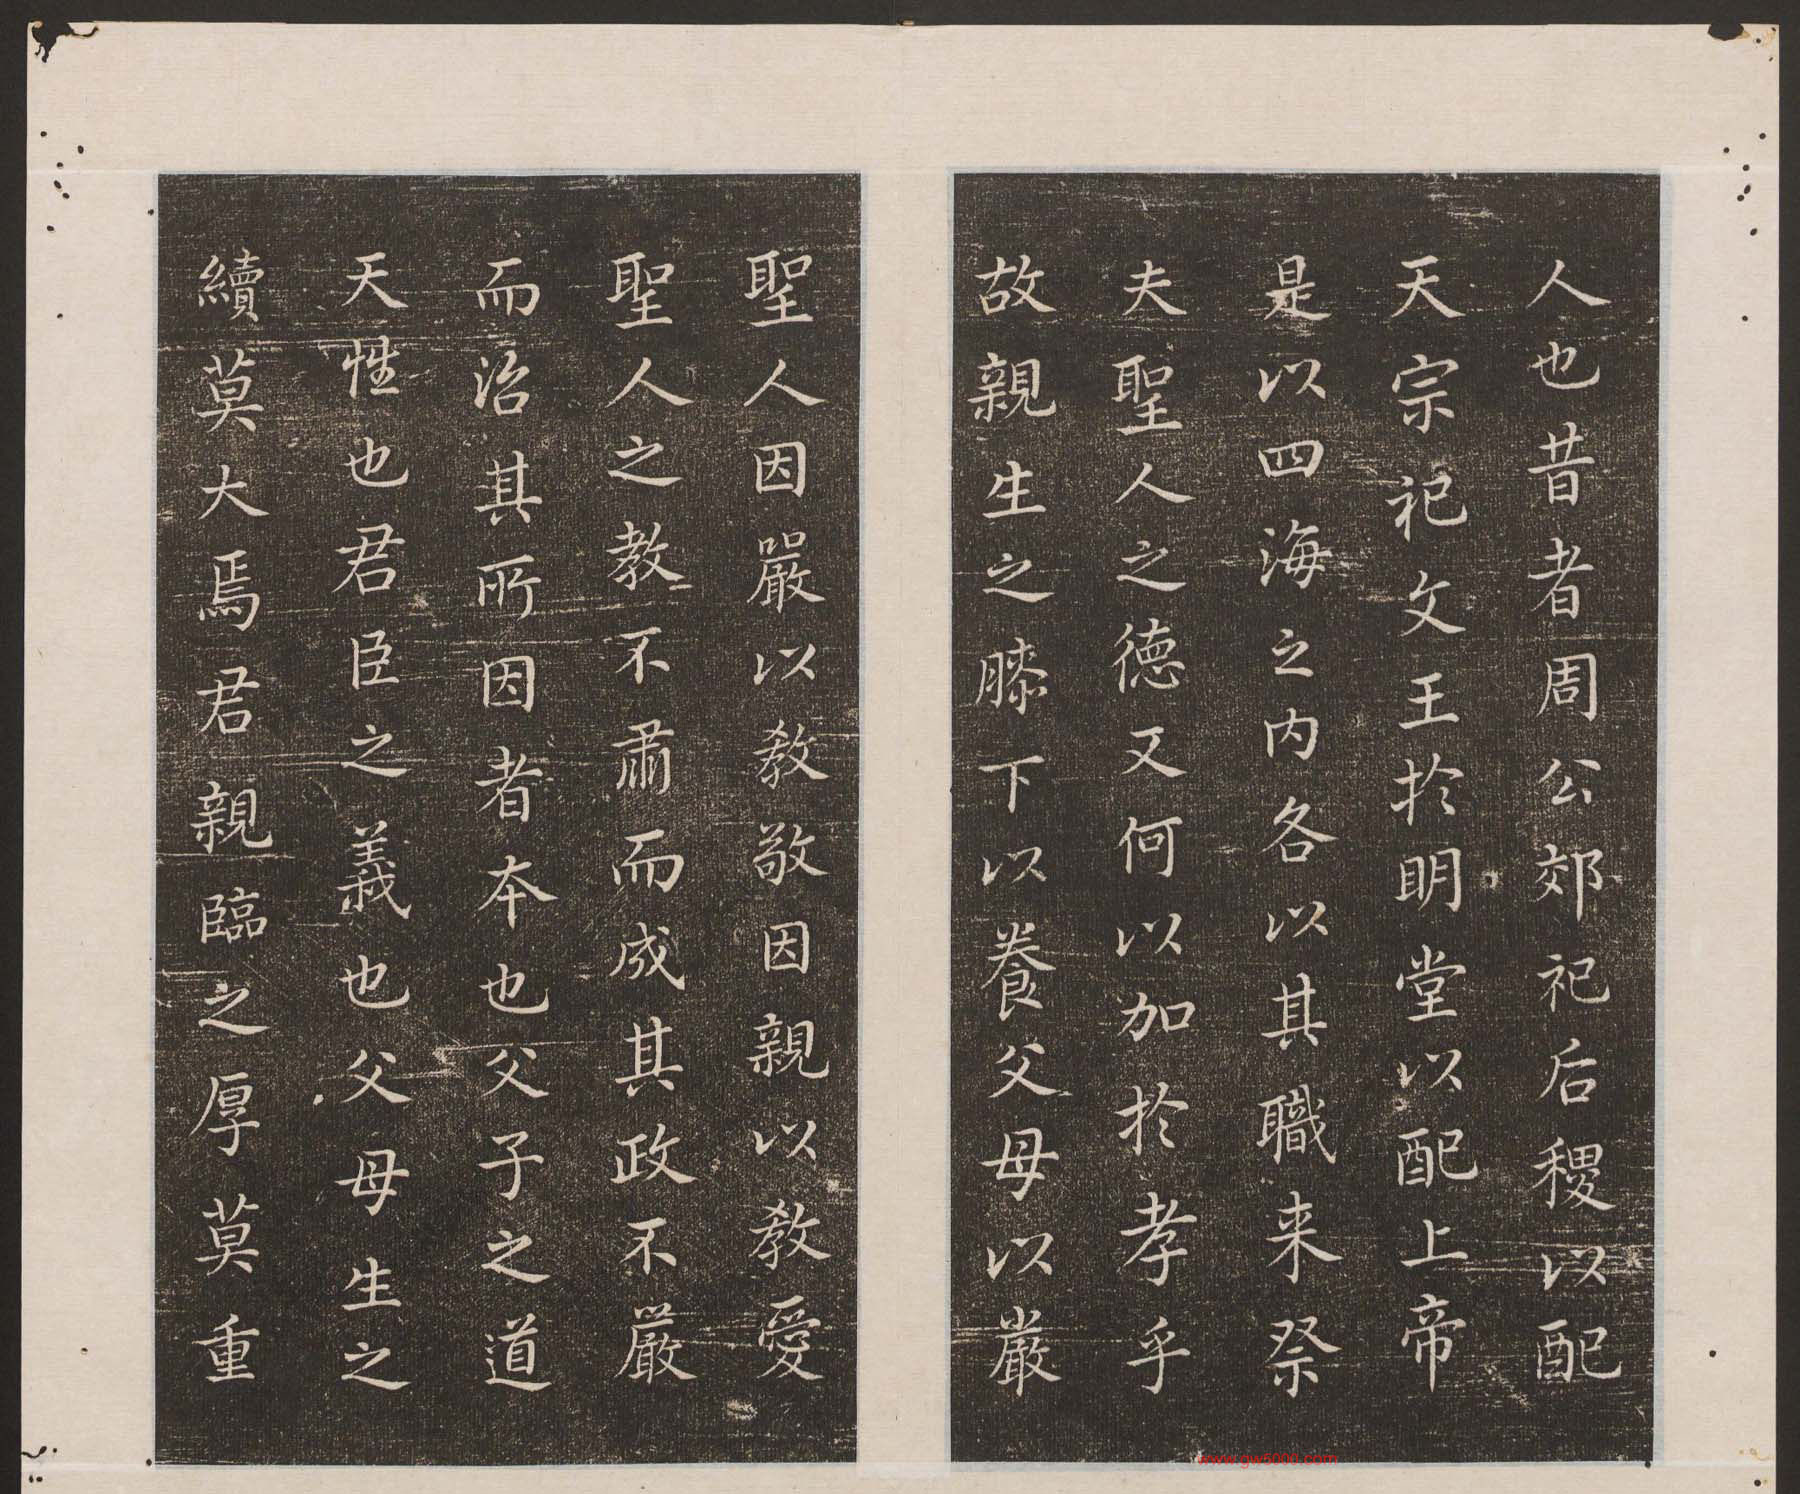 人也昔者周公郊祀后稷以配
天宗祀文王於明堂以配上帝
是以四海之内各以其職来祭
夫聖人之德又何以加於孝乎
故親生之膝下以養父母以嚴
聖人因嚴以教敬因親以教愛
聖人之教不肅而成其政不嚴
而治其所因者本也父子之道
天性也君臣之義也父母生之
續莫大焉君親臨之厚莫重
www.gw5000.com